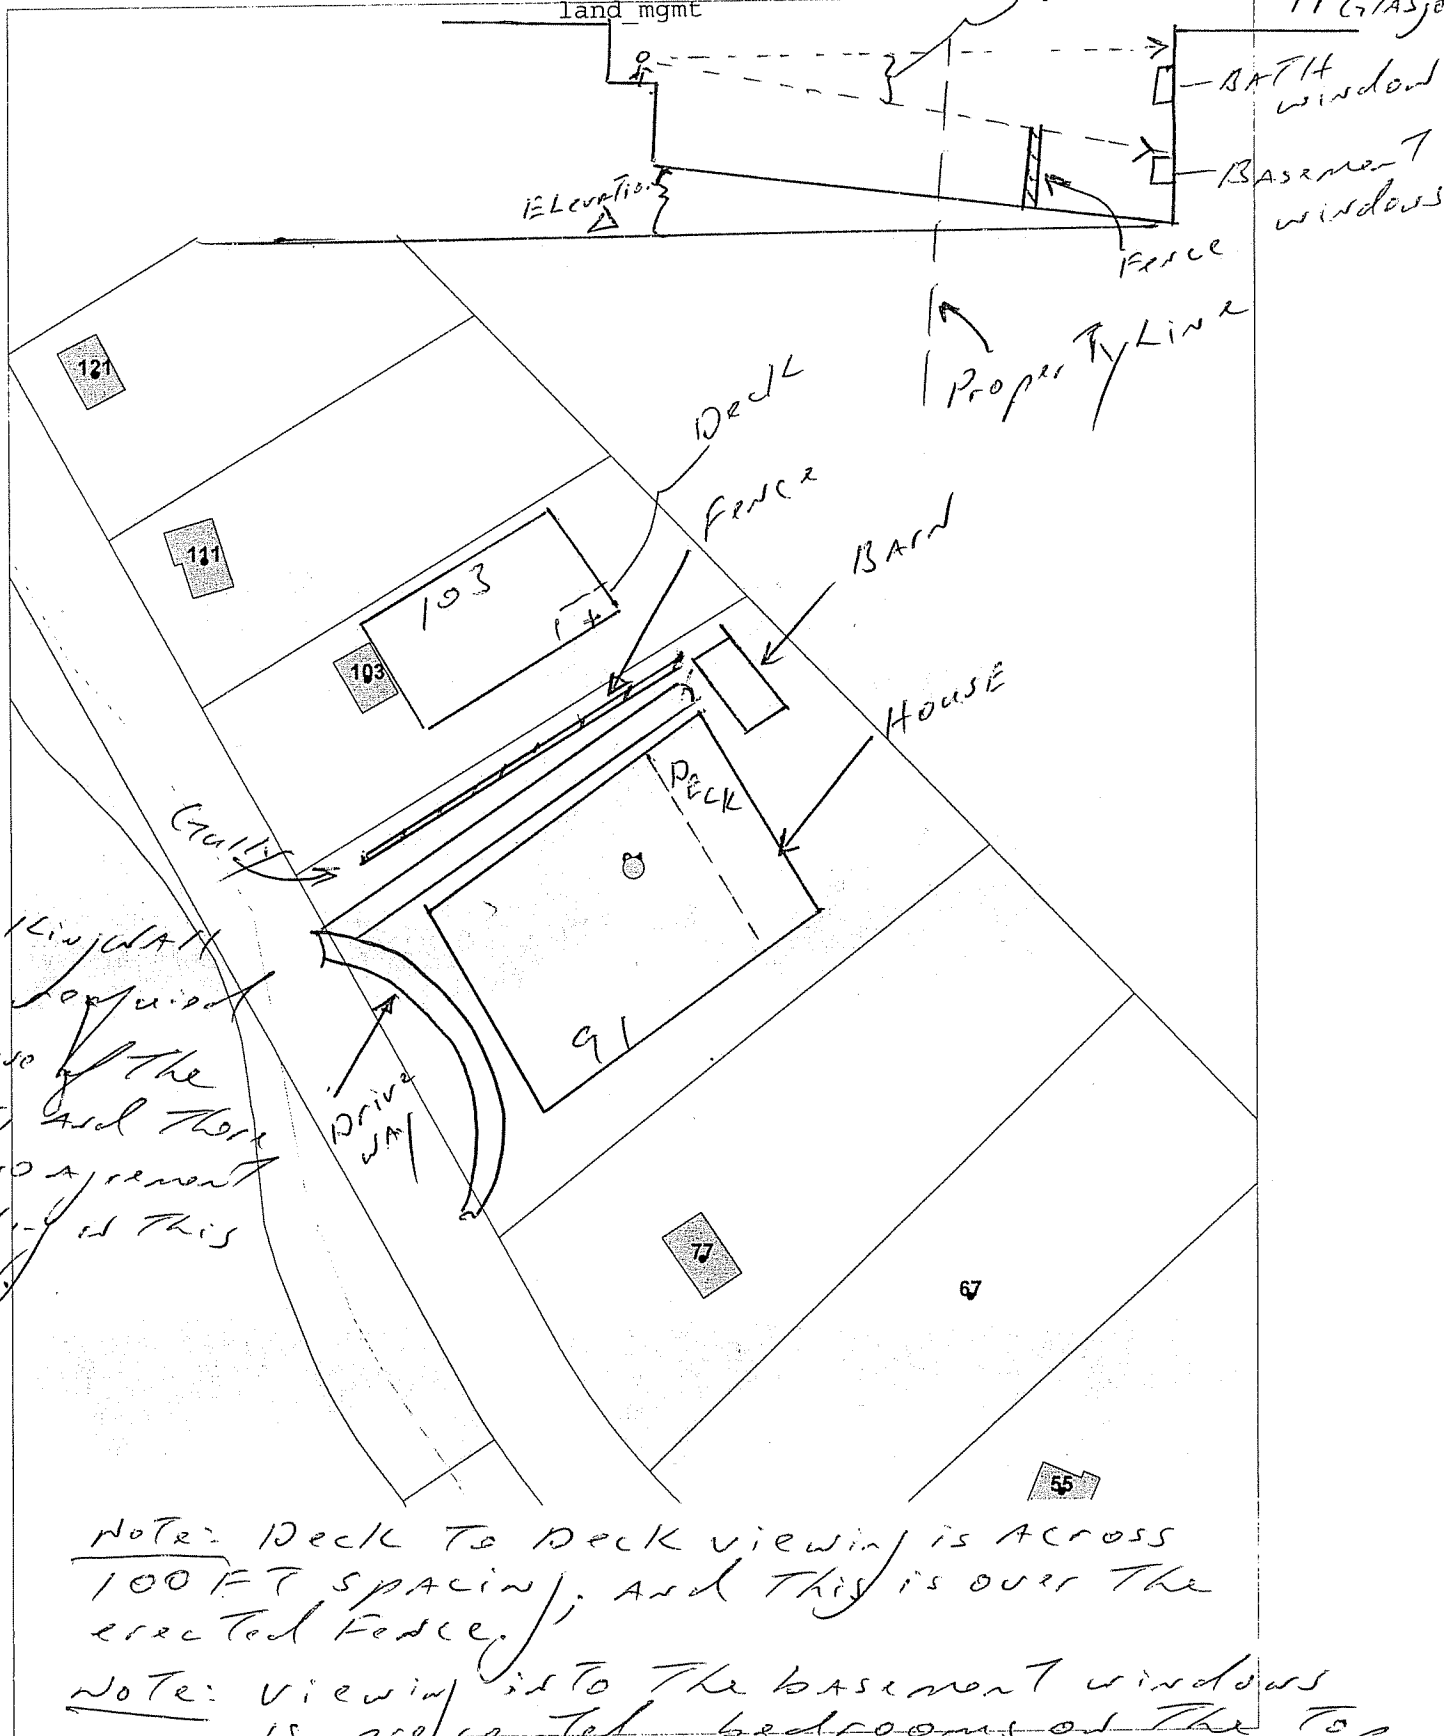 land_mgmt
BATH
window
Basement
windows
Elevation
Fence
Property Line
121
Deck
Fence
Barn
111
103
103
House
Deck
Gully
91
Drive
way
required
of the
And There
Agrement
in This
77
67
55
Note: Deck To Deck viewing is Across
100 FT spacing; And This is over The
erected Fence.
Note: Viewing into The basement windows
is bedrooms on The Top